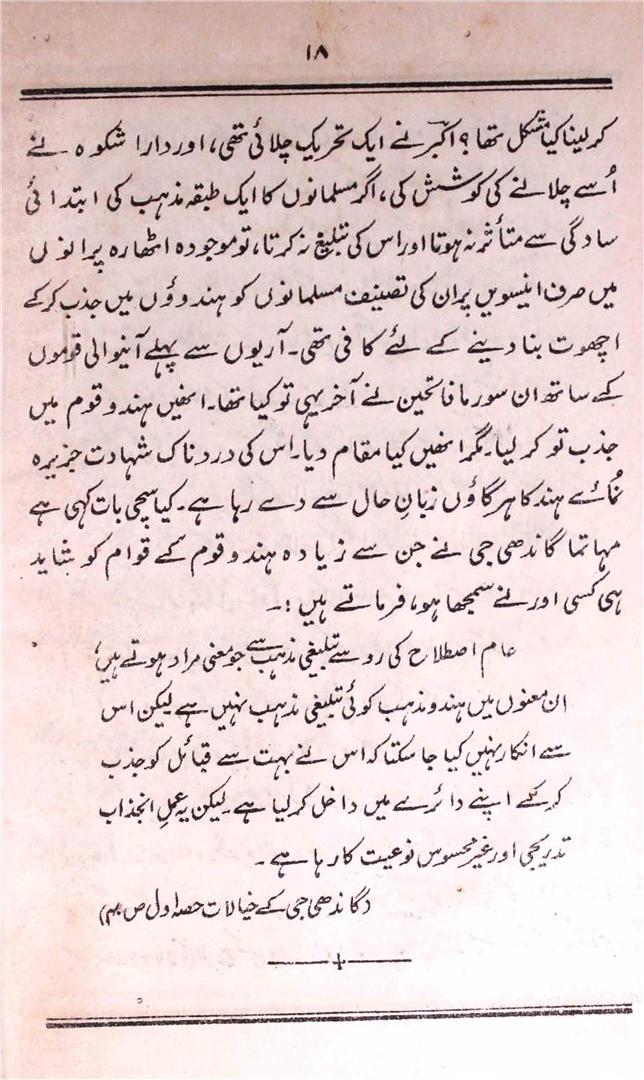 ۱۸
کر لینا کیا مشکل تھا؟ اکبر نے ایک تحریک چلائی تھی، اور دارا شکوہ نے
اُسے چلانے کی کوشش کی، اگر مسلمانوں کا ایک طبقہ مذہب کی ابتدائی
سادگی سے متأثر نہ ہوتا اور اس کی تبلیغ نہ کرتا، تو موجودہ اٹھارہ پرانوں
میں صرف انیسویں پران کی تصنیف مسلمانوں کو ہندوؤں میں جذب کرکے
اچھوت بنا دینے کے لئے کافی تھی۔ آریوں سے پہلے آنیوالی قوموں
کے ساتھ ان سورما فاتحین نے آخر یہی تو کیا تھا۔ انھیں ہندو قوم میں
جذب تو کر لیا۔ مگر انھیں کیا مقام دیا۔ اس کی دردناک شہادت جزیرہ
نُمائے ہند کا ہر گاؤں زبانِ حال سے دے رہا ہے۔ کیا سچی بات کہی ہے
مہاتما گاندھی جی نے جن سے زیادہ ہندو قوم کے قوام کو شاید
ہی کسی اور نے سمجھا ہو، فرماتے ہیں :۔
عام اصطلاح کی رو سے تبلیغی مذہب سے جو معنی مراد ہوتے ہیں،
ان معنوں میں ہندو مذہب کوئی تبلیغی مذہب نہیں ہے لیکن اس
سے انکار نہیں کیا جا سکتا کہ اس نے بہت سے قبائل کو جذب
کرکے اپنے دائرے میں داخل کر لیا ہے۔ لیکن یہ عملِ انجذاب
تدریجی اور غیر محسوس نوعیت کا رہا ہے۔
(گاندھی جی کے خیالات حصہ اول ص)